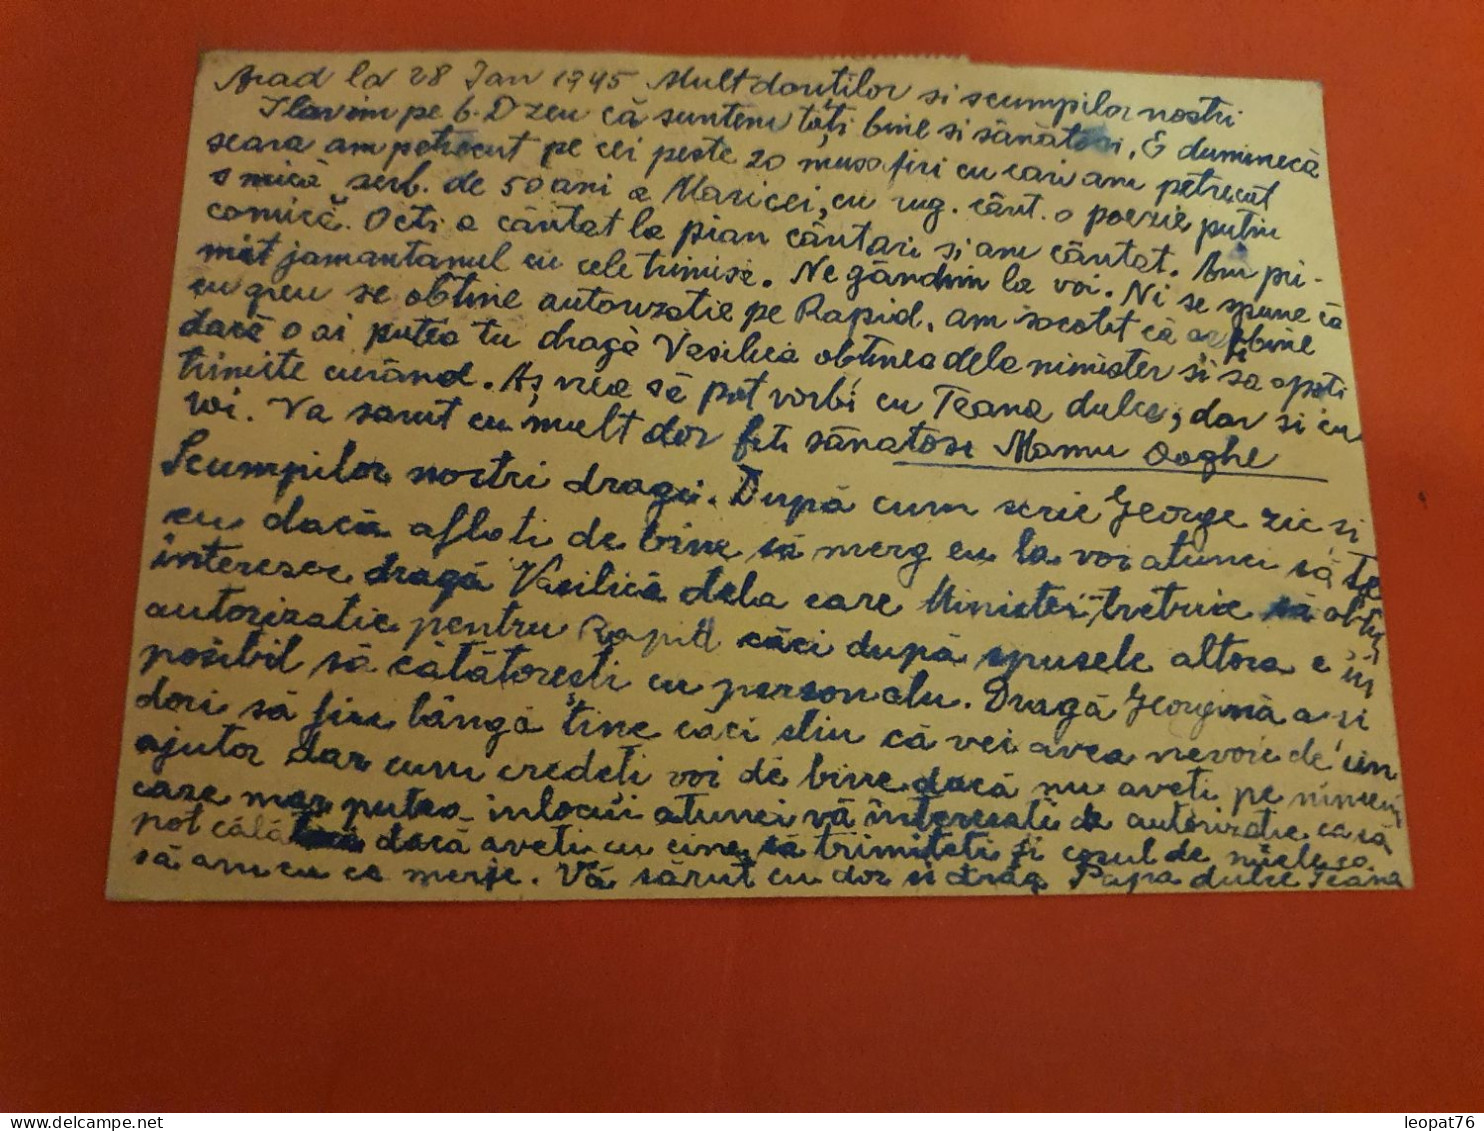 Arad la 28 Jan 1945 Mult doritilor si scumpilor nostri
Slavim pe b. D zeu că suntem toți bine si sănătosi. E duminecă
seara am petrecut pe cei peste 20 musafiri cu cari am petrecut
o mică serb. de 50 ani a Maricei, cu rug. cânt. o poezie putin
comică. Octi a cântat la pian cântari si am cântat. Am pri-
mit jamantanul cu cele trimise. Ne gândim la voi. Ni se spune că
cu greu se obtine autorizatie pe Rapid, am socotit că bine
dacă o ai putea tu dragă Vasilica obtinea dela minister si sa o poti
trimite curând. Aș vrea să pot vorbi cu Teana dulce, dar si cu
voi. Va sarut cu mult dor fiti sănatosi Mamu
Scumpilor nostri dragi. După cum scrie George zic si
eu dacă aflati de bine să merg eu la voi atunci să te
interesez dragă Vasilică dela care Minister trebuie să obtii
autorizatie pentru Rapid căci după spusele altora e im
posibil să călătorești cu personalu. Dragă Georgină a-si
dori să fiu lângă tine caci stiu că vei avea nevoie de un
ajutor dar cum credeti voi de bine dacă nu aveti pe nimeni
care m-ar putea inlocui atunci vă interesati de autorizatie ca să
pot călă dacă aveti cu cine să trimiteti și cosul de nuiele ca
să am cu ce merge. Vă sărut cu dor si drag Papa dulce Teana
leopat76